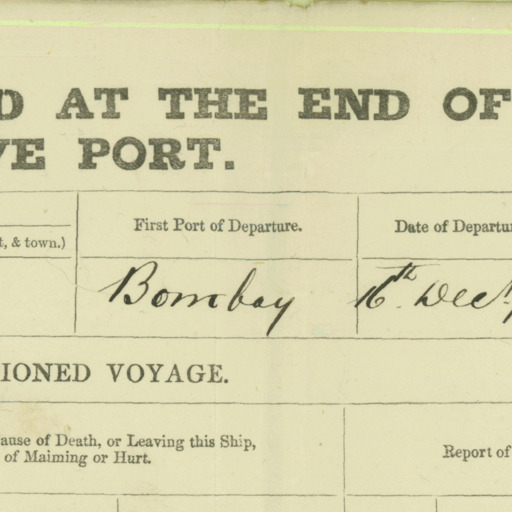 D AT THE END OF
VE PORT.
t, & town.) First Port of Departure. Date of Departu
Bombay 16th Dec
IONED VOYAGE.
ause of Death, or Leaving this Ship,
of Maiming or Hurt.
Report of